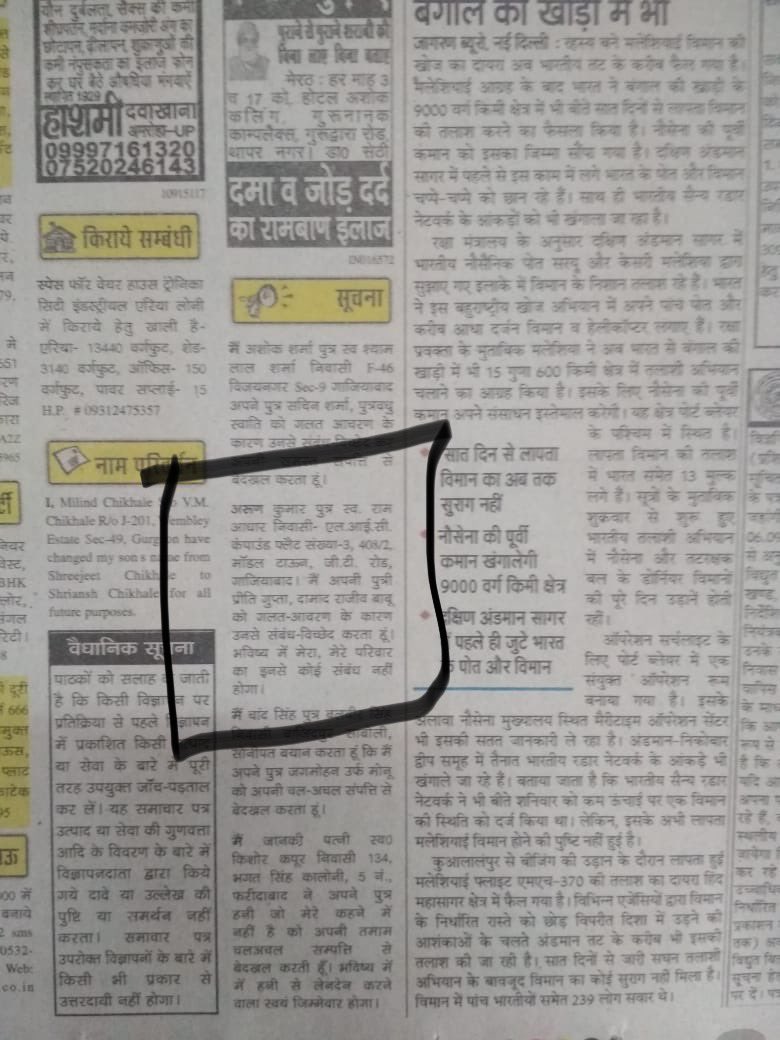 यौन दुर्बलता, सेक्स की कमी
शीघ्रपतन, मर्दाना कमजोरी अंग का
छोटापन, ढीलापन, शुक्राणुओं की
कमी नपुंसकता का इलाज फोन
कर घर बैठे औषधियां मंगवाऐं
स्थापित 1929
हाशमी दवाखाना
अमरोहा-UP
09997161320
07520246143
10915117
किराये सम्बंधी
स्पेस फॉर वेयर हाउस ट्रोनिका
सिटी इंडस्ट्रीयल एरिया लोनी
में किराये हेतु खाली है-
एरिया- 13440 वर्गफुट, शेड-
3140 वर्गफुट, ऑफिस- 150
वर्गफुट, पावर सप्लाई- 15
H.P. # 09312475357
नाम परिवर्तन
I, Milind Chikhale S/o V.M.
Chikhale R/o J-201, Wembley
Estate Sec-49, Gurgaon have
changed my son's name from
Shreejeet Chikhale to
Shriansh Chikhale for all
future purposes.
वैधानिक सूचना
पाठकों को सलाह दी जाती
है कि किसी विज्ञापन पर
प्रतिक्रिया से पहले विज्ञापन
में प्रकाशित किसी
या सेवा के बारे में पूरी
तरह उपयुक्त जाँच-पड़ताल
कर लें। यह समाचार पत्र
उत्पाद या सेवा की गुणवत्ता
आदि के विवरण के बारे में
विज्ञापनदाता द्वारा किये
गये दावे या उल्लेख की
पुष्टि या समर्थन नहीं
करता। समाचार पत्र
उपरोक्त विज्ञापनों के बारे में
किसी भी प्रकार से
उत्तरदायी नहीं होगा।
पुराने से पुराने शराबी को
बिना लाए बिना बताए
मेरठ : हर माह 3
व 17 को, होटल अशोक
कलिंग, गुरूनानक
काम्पलैक्स, गुरूद्वारा रोड,
थापर नगर। डा0 सेठी
दमा व जोड़ दर्द
का रामबाण इलाज
सूचना
मैं अशोक शर्मा पुत्र स्व श्याम
लाल शर्मा निवासी F-46
विजयनगर Sec-9 गाजियाबाद
अपने पुत्र सचिन शर्मा, पुत्रवधु
स्वाति को गलत आचरण के
कारण उनसे संबंध विच्छेद कर
अपनी समस्त संपत्ति से
बेदखल करता हूं।
अरूण कुमार पुत्र स्व. राम
आधार निवासी- एल.आई.सी.
कंपाउंड फ्लैट संख्या-3, 408/2,
मॉडल टाऊन, जी.टी. रोड,
गाजियाबाद। मैं अपनी पुत्री
प्रीति गुप्ता, दामाद राजीव बाबू
को गलत-आचरण के कारण
उनसे संबंध-विच्छेद करता हूं।
भविष्य में मेरा, मेरे परिवार
का इनसे कोई संबंध नहीं
होगा।
मैं चांद सिंह पुत्र सिंह
निवासी
सोनीपत बयान करता हूं कि मैं
अपने पुत्र जगमोहन उर्फ मोनू
को अपनी चल-अचल संपत्ति से
बेदखल करता हूं।
मैं जानकी पत्नी स्व0
किशोर कपूर निवासी 134,
भगत सिंह कालोनी, 5 नं.,
फरीदाबाद ने अपने पुत्र
हनी जो मेरे कहने में
नहीं है को अपनी तमाम
चलअचल सम्पत्ति से
बेदखल करती हूँ। भविष्य में
में हनी से लेनदेन करने
वाला स्वयं जिम्मेवार होगा।
बंगाल की खाड़ी में भी
जागरण ब्यूरो, नई दिल्ली : रहस्य बने मलेशियाई विमान की
खोज का दायरा अब भारतीय तट के करीब फैल गया है।
मैलेशियाई आग्रह के बाद भारत ने बंगाल की खाड़ी के
9000 वर्ग किमी क्षेत्र में भी बीते सात दिनों से लापता विमान
की तलाश करने का फैसला किया है। नौसेना की पूर्वी
कमान को इसका जिम्मा सौंपा गया है। दक्षिण अंडमान
सागर में पहले से इस काम में लगे भारत के पोत और विमान
चप्पे-चप्पे को छान रहे हैं। साथ ही भारतीय सैन्य रडार
नेटवर्क के आंकड़ों को भी खंगाला जा रहा है।
रक्षा मंत्रालय के अनुसार दक्षिण अंडमान सागर में
भारतीय नौसैनिक पोत सरयू और केसरी मलेशिया द्वारा
सुझाए गए इलाके में विमान के निशान तलाश रहे हैं। भारत
ने इस बहुराष्ट्रीय खोज अभियान में अपने पांच पोत और
करीब आधा दर्जन विमान व हेलीकॉप्टर लगाए हैं। रक्षा
प्रवक्ता के मुताबिक मलेशिया ने अब भारत से बंगाल की
खाड़ी में भी 15 गुणा 600 किमी क्षेत्र में तलाशी अभियान
चलाने का आग्रह किया है। इसके लिए नौसेना की पूर्वी
कमान अपने संसाधन इस्तेमाल करेगी। यह क्षेत्र पोर्ट ब्लेयर
के पश्चिम में स्थित है।
लापता विमान की तलाश
में भारत समेत 13 मुल्क
लगे हैं। सूत्रों के मुताबिक
शुक्रवार से शुरू हुए
भारतीय तलाशी अभियान
में नौसेना और तटरक्षक
बल के डोर्नियर विमानों
की पूरे दिन उड़ानें होती
रही।
सात दिन से लापता
विमान का अब तक
सुराग नहीं
नौसेना की पूर्वी
कमान खंगालेगी
9000 वर्ग किमी क्षेत्र
दक्षिण अंडमान सागर
पहले ही जुटे भारत
के पोत और विमान
ऑपरेशन सर्चलाइट के
लिए पोर्ट ब्लेयर में एक
संयुक्त ऑपरेशन रूम
बनाया गया है। इसके
अलावा नौसेना मुख्यालय स्थित मैरीटाइम ऑपरेशन सेंटर
भी इसकी सतत जानकारी ले रहा है। अंडमान-निकोबार
द्वीप समूह में तैनात भारतीय रडार नेटवर्क के आंकड़े भी
खंगाले जा रहे हैं। बताया जाता है कि भारतीय सैन्य रडार
नेटवर्क ने भी बीते शनिवार को कम ऊंचाई पर एक विमान
की स्थिति को दर्ज किया था। लेकिन, इसके अभी लापता
मलेशियाई विमान होने की पुष्टि नहीं हुई है।
कुआलालंपुर से बीजिंग की उड़ान के दौरान लापता हुई
मलेशियाई फ्लाइट एमएच-370 की तलाश का दायरा हिंद
महासागर क्षेत्र में फैल गया है। विभिन्न एजेंसियों द्वारा विमान
के निर्धारित रास्ते को छोड़ विपरीत दिशा में उड़ने की
आशंकाओं के चलते अंडमान तट के करीब भी इसकी
तलाश की जा रही है। सात दिनों से जारी सघन तलाशी
अभियान के बावजूद विमान का कोई सुराग नहीं मिला है।
विमान में पांच भारतीयों समेत 239 लोग सवार थे।